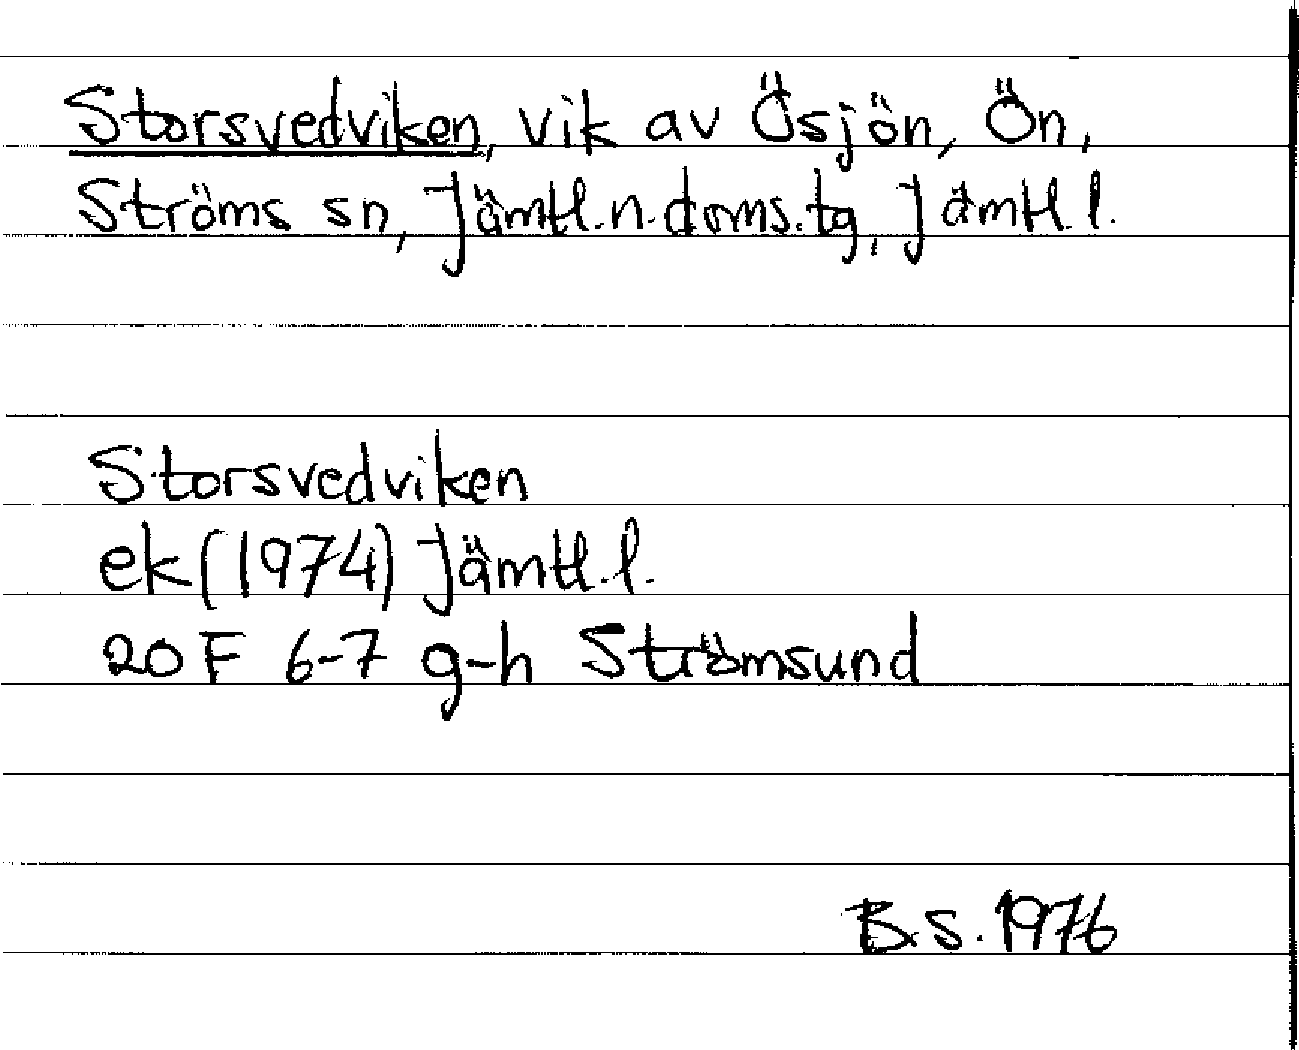 Storsvedviken, vik av Ösjön, Ön,
Ströms sn, Jämtl.n.doms.tg, Jämtl.l.
Storsvedviken
ek (1974) Jämtl.l.
20 F 6-7 g-h Strömsund
B.S. 1976